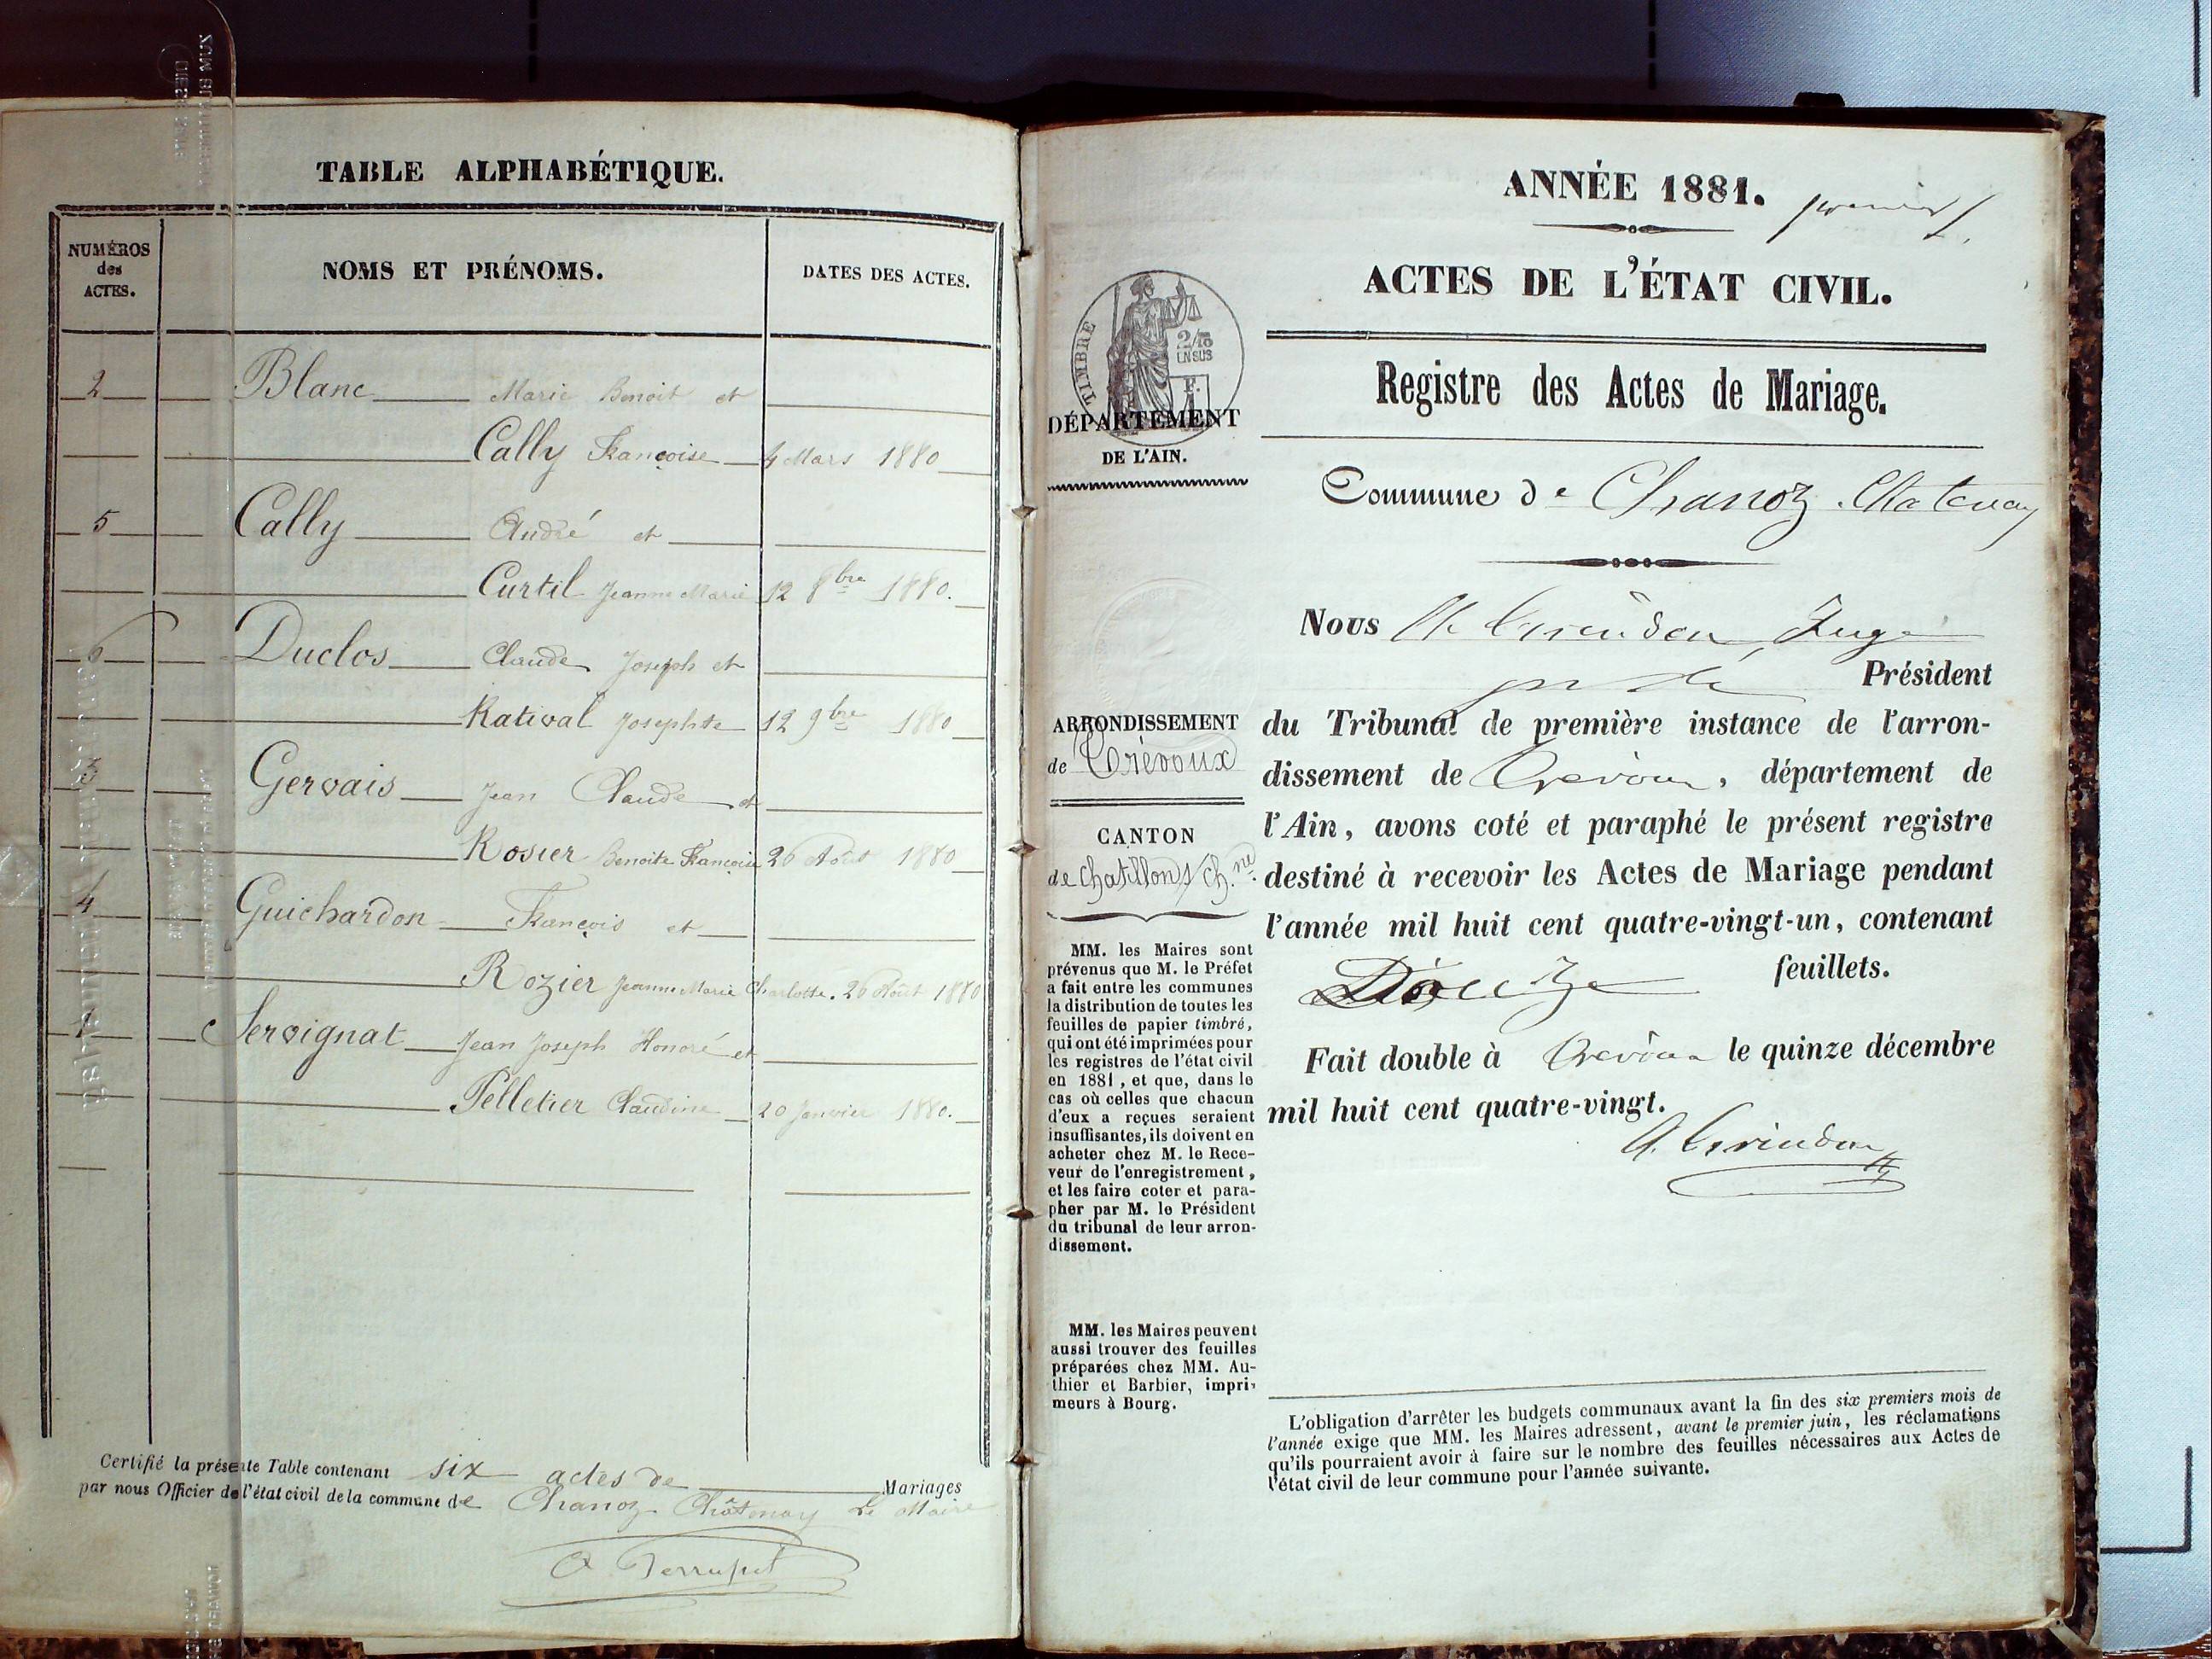 TABLE ALPHABÉTIQUE.
NUMÉROS
des
ACTES.
NOMS ET PRÉNOMS.
DATES DES ACTES.
2 Blanc Marie Benoit et
Cally Françoise 4 Mars 1880
5 Cally André et
Curtil Jeanne Marie 12 8bre 1880.
6 Duclos Claude Joseph et
Rativat Josephte 12 9bre 1880
3 Gervais Jean Claude et
Rosier Benoite Françoise 26 Août 1880
4 Guichardon François et
Rozier Jeanne Marie Charlotte. 26 Août 1880
1 Servignat Jean Joseph Honoré et
Pelletier Claudine 20 Janvier 1880.
Certifié la présente Table contenant six actes de Mariages
par nous Officier de l'état civil de la commune de Chanoz Châtenay Le Maire
ANNÉE 1881.
premier
ACTES DE L'ÉTAT CIVIL.
Registre des Actes de Mariage.
TIMBRE
2/10
EN SUS
DÉPARTEMENT
DE L'AIN.
Commune de Chanoz-Chatenay
Nous Juge
Président
du Tribunal de première instance de l'arron-
dissement de Trévoux, département de
l'Ain, avons coté et paraphé le présent registre
destiné à recevoir les Actes de Mariage pendant
l'année mil huit cent quatre-vingt-un, contenant
Douze feuillets.
Fait double à Trévoux le quinze décembre
mil huit cent quatre-vingt.
ARRONDISSEMENT
de Trévoux
CANTON
de Chatillon s/ Ch.ne
MM. les Maires sont
prévenus que M. le Préfet
a fait entre les communes
la distribution de toutes les
feuilles de papier timbré,
qui ont été imprimées pour
les registres de l'état civil
en 1881, et que, dans le
cas où celles que chacun
d'eux a reçues seraient
insuffisantes, ils doivent en
acheter chez M. le Rece-
veur de l'enregistrement,
et les faire coter et para-
pher par M. le Président
du tribunal de leur arron-
dissement.
MM. les Maires peuvent
aussi trouver des feuilles
préparées chez MM. Au-
thier et Barbier, impri-
meurs à Bourg.
L'obligation d'arrêter les budgets communaux avant la fin des six premiers mois de
l'année exige que MM. les Maires adressent, avant le premier juin, les réclamations
qu'ils pourraient avoir à faire sur le nombre des feuilles nécessaires aux Actes de
l'état civil de leur commune pour l'année suivante.